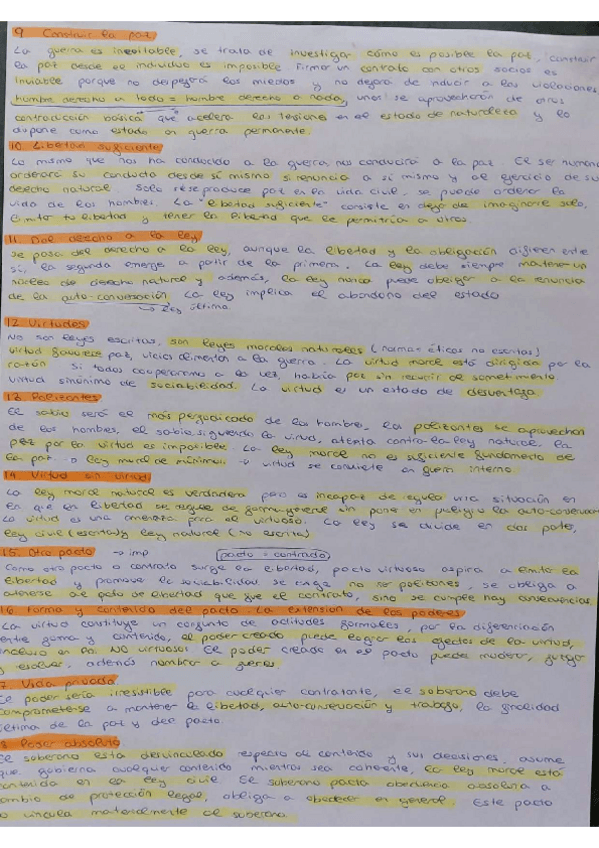 9. Construir la paz
La guerra es inevitable, se trata de investigar cómo es posible la paz, construir
la paz desde el individuo es imposible. Firmar un contrato con otros socios es
inviable porque no despejará los miedos y no dejará de inducir a las violaciones
hombre derecho a todo = hombre derecho a nada, unos se aprovecharán de otros
contradicción básica que acelera las tensiones en el estado de naturaleza y lo
dispone como estado en guerra permanente.
10. Libertad suficiente
Lo mismo que nos ha conducido a la guerra nos conducirá a la paz. El ser humano
ordenará su conducta desde sí mismo si renuncia a sí mismo y al ejercicio de su
derecho natural. Solo se produce paz en la vida civil, se puede ordenar la
vida de los hombres. La "libertad suficiente" consiste en dejar de imaginarse solo,
limitar tu libertad y tener la libertad que le permitiría a otros.
11. Del derecho a la ley
se pasa del derecho a la ley, aunque la libertad y la obligación difieren entre
sí, la segunda emerge a partir de la primera. La ley debe siempre mantener un
núcleo de derecho natural y además, la ley nunca puede obligar a la renuncia
de la auto-conservación. La ley implica el abandono del estado
→ ley última
12. Virtudes
No son leyes escritas, son leyes morales naturales (normas éticas no escritas)
virtud favorece paz, vicios alimentan a la guerra. La virtud moral está dirigida por la
razón. Si todos cooperaramos a la vez, habría paz sin recurrir al sometimiento
virtud sinónimo de sociabilidad. La virtud es un estado de desventaja.
13. Polizontes
El sabio será el más perjudicado de los hombres. Los polizontes se aprovechan
de los hombres, el sabio, siguiendo la virtud, atenta contra la ley natural, la
paz por la virtud es imposible. La ley moral no es suficiente fundamento de
la paz. → ley moral de mínimos. → virtud se convierte en guerra interna.
14. Virtud sin virtud
La ley moral natural es verdadera pero es incapaz de regular una situación en
en que en libertad se requiere de forma que sin poner en peligro la auto-conservación
La virtud es una amenaza para el virtuoso. La ley se divide en dos partes,
ley civil (escritas) y ley natural (no escrita).
15. Otro pacto → imp pacto = contrato
Como otro pacto o contrato surge la libertad, pacto virtuoso aspira a limitar la
libertad y promover la sociabilidad se exige no ser polizones, se obliga a
atenerse al grado de libertad que fije el contrato, sino se cumple hay consecuencias.
16. Forma y contenido del pacto. La extensión de los poderes
La virtud constituye un conjunto de actitudes formales, por la diferenciación
entre forma y contenido, el poder creado puede lograr los efectos de la virtud,
incluso en los NO virtuosos. El poder creado en el pacto puede mudar, juzgar
y resolver, además nombrar a jueces.
17. Vida privada
El poder sería irresistible para cualquier contratante, el soberano debe
comprometerse a mantener la libertad, auto-conservación y trabajo, la finalidad
última de la paz y del pacto.
18. Poder absoluto
El soberano está desvinculado respecto al contenido y sus decisiones, asume
que gobierna cualquier contenido mientras sea coherente, la ley moral está
contenida en la ley civil. El soberano pacta obediencia absoluta a
cambio de protección legal, obliga a obedecer en general. Este pacto
no vincula materialmente al soberano.